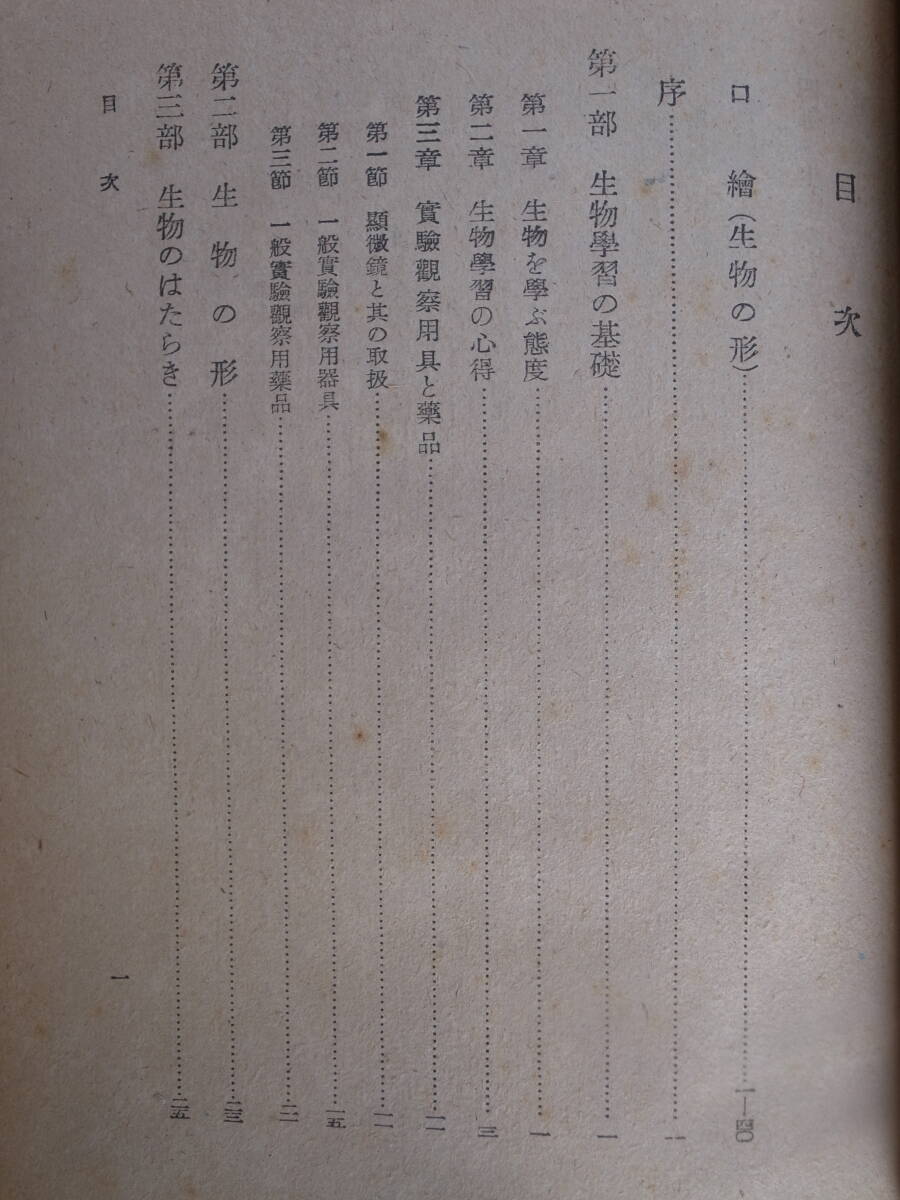 目次
口繪(生物の形)……一—四〇
序……一
第一部 生物學習の基礎……一
第一章 生物を學ぶ態度……一
第二章 生物學習の心得……三
第三章 實驗觀察用具と藥品……一一
第一節 顯微鏡と其の取扱……一一
第二節 一般實驗觀察用器具……一五
第三節 一般實驗觀察用藥品……
第二部 生物の形……二三
第三部 生物のはたらき……二五
目次
一